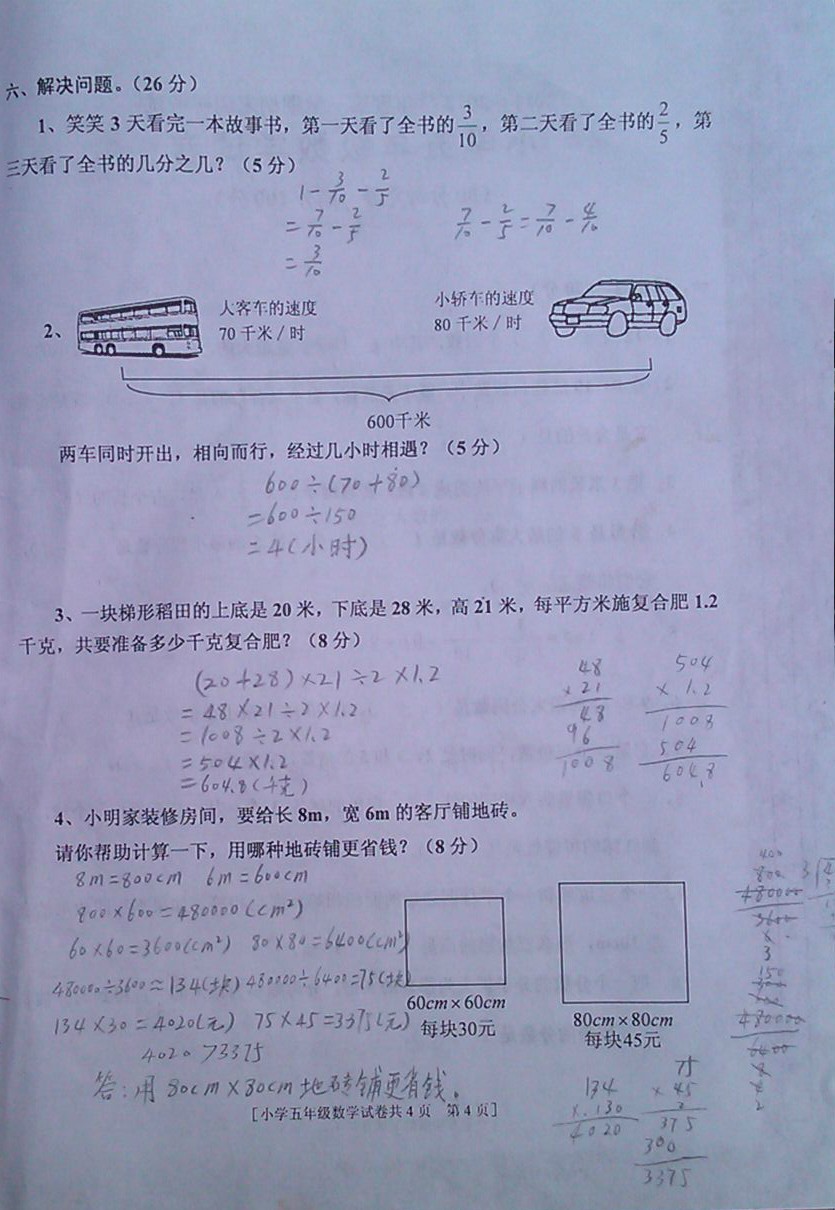 六、解决问题。（26 分）
1、笑笑 3 天看完一本故事书，第一天看了全书的3/10，第二天看了全书的2/5，第
三天看了全书的几分之几？（5 分）
1-3/10-2/5
=7/10-2/5 7/10-2/5=7/10-4/10
=3/10
2、 大客车的速度 小轿车的速度
70 千米／时 80 千米／时
600千米
两车同时开出，相向而行，经过几小时相遇？（5 分）
600÷(70+80)
=600÷150
=4(小时)
3、一块梯形稻田的上底是 20 米，下底是 28 米，高 21 米，每平方米施复合肥 1.2
千克，共要准备多少千克复合肥？（8 分）
(20+28)×21÷2×1.2
=48×21÷2×1.2
=1008÷2×1.2
=504×1.2
=604.8(千克)
48 504
×21 ×1.2
48 1008
96 504
1008 604.8
4、小明家装修房间，要给长 8m，宽 6m 的客厅铺地砖。
请你帮助计算一下，用哪种地砖铺更省钱？（8 分）
8m=800cm 6m=600cm
800×600=480000(cm²)
60×60=3600(cm²) 80×80=6400(cm²)
480000÷3600≈134(块) 480000÷6400=75(块)
134×30=4020(元) 75×45=3375(元)
4020>3375
答:用80cm×80cm地砖铺更省钱。
60cm×60cm
每块30元
80cm×80cm
每块45元
400
800
480000
3600
3
150
300
480000
6400
2
134 75
×.130 ×45
4020 375
300
3375
[小学五年级数学试卷共 4 页 第 4 页]